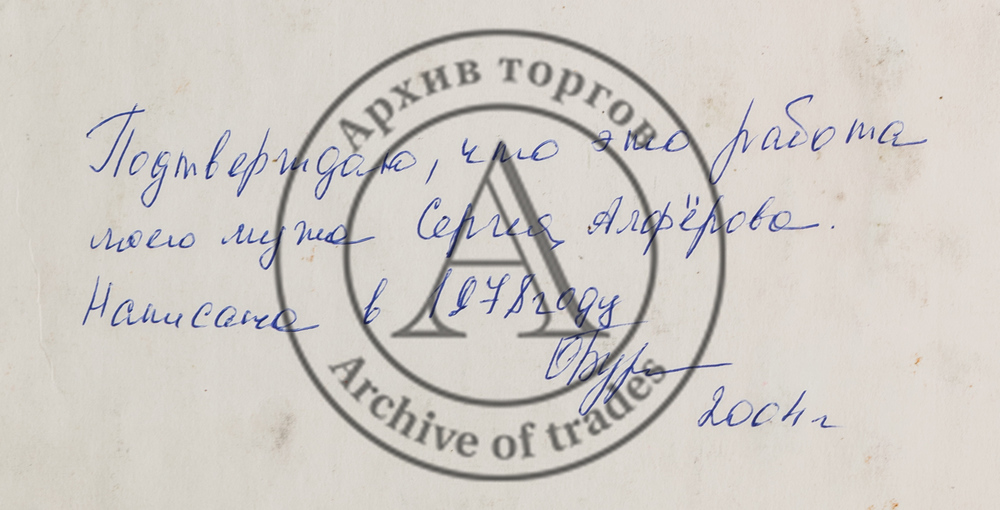 Архив торгов
Подтверждаю, что это работа
моего мужа Сергея Алфёрова.
Написана в 1978 году
2004 г
Archive of trades